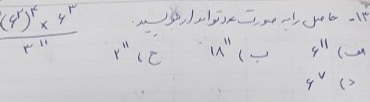 ۱۳- حاصل را به صورت عدد تواندار بنویسید.
(۶^۲)^۴ × ۶^۳ / ۳^۱۱
الف) ۶^۱۱ ب) ۱۸^۱۱ ج) ۲^۱۱
د) ۶^۷